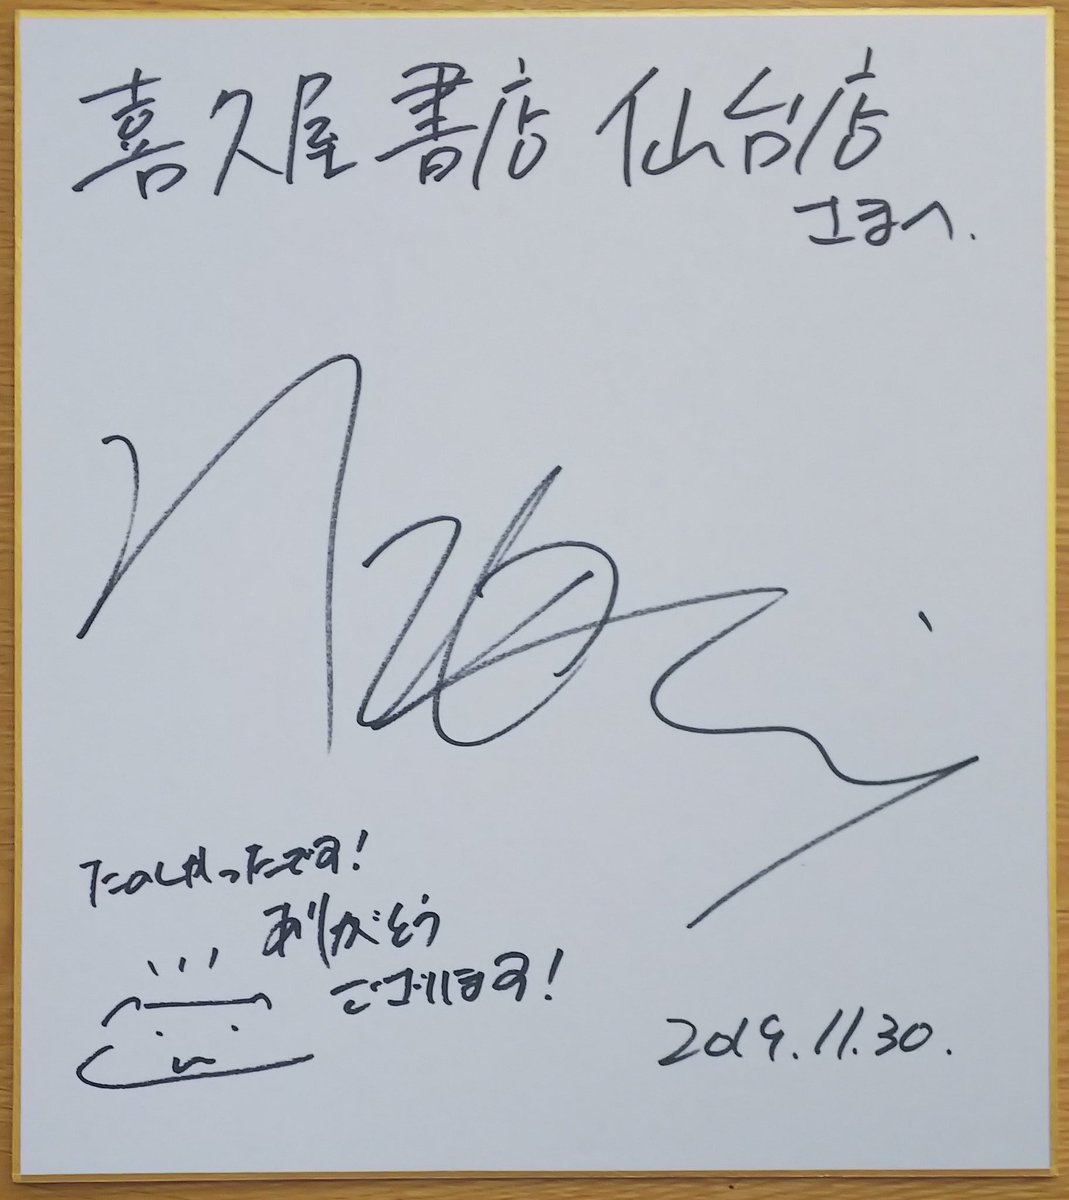 喜久屋書店 仙台店
さまへ.
たのしかったです!
ありがとう
ございます!
2019.11.30.